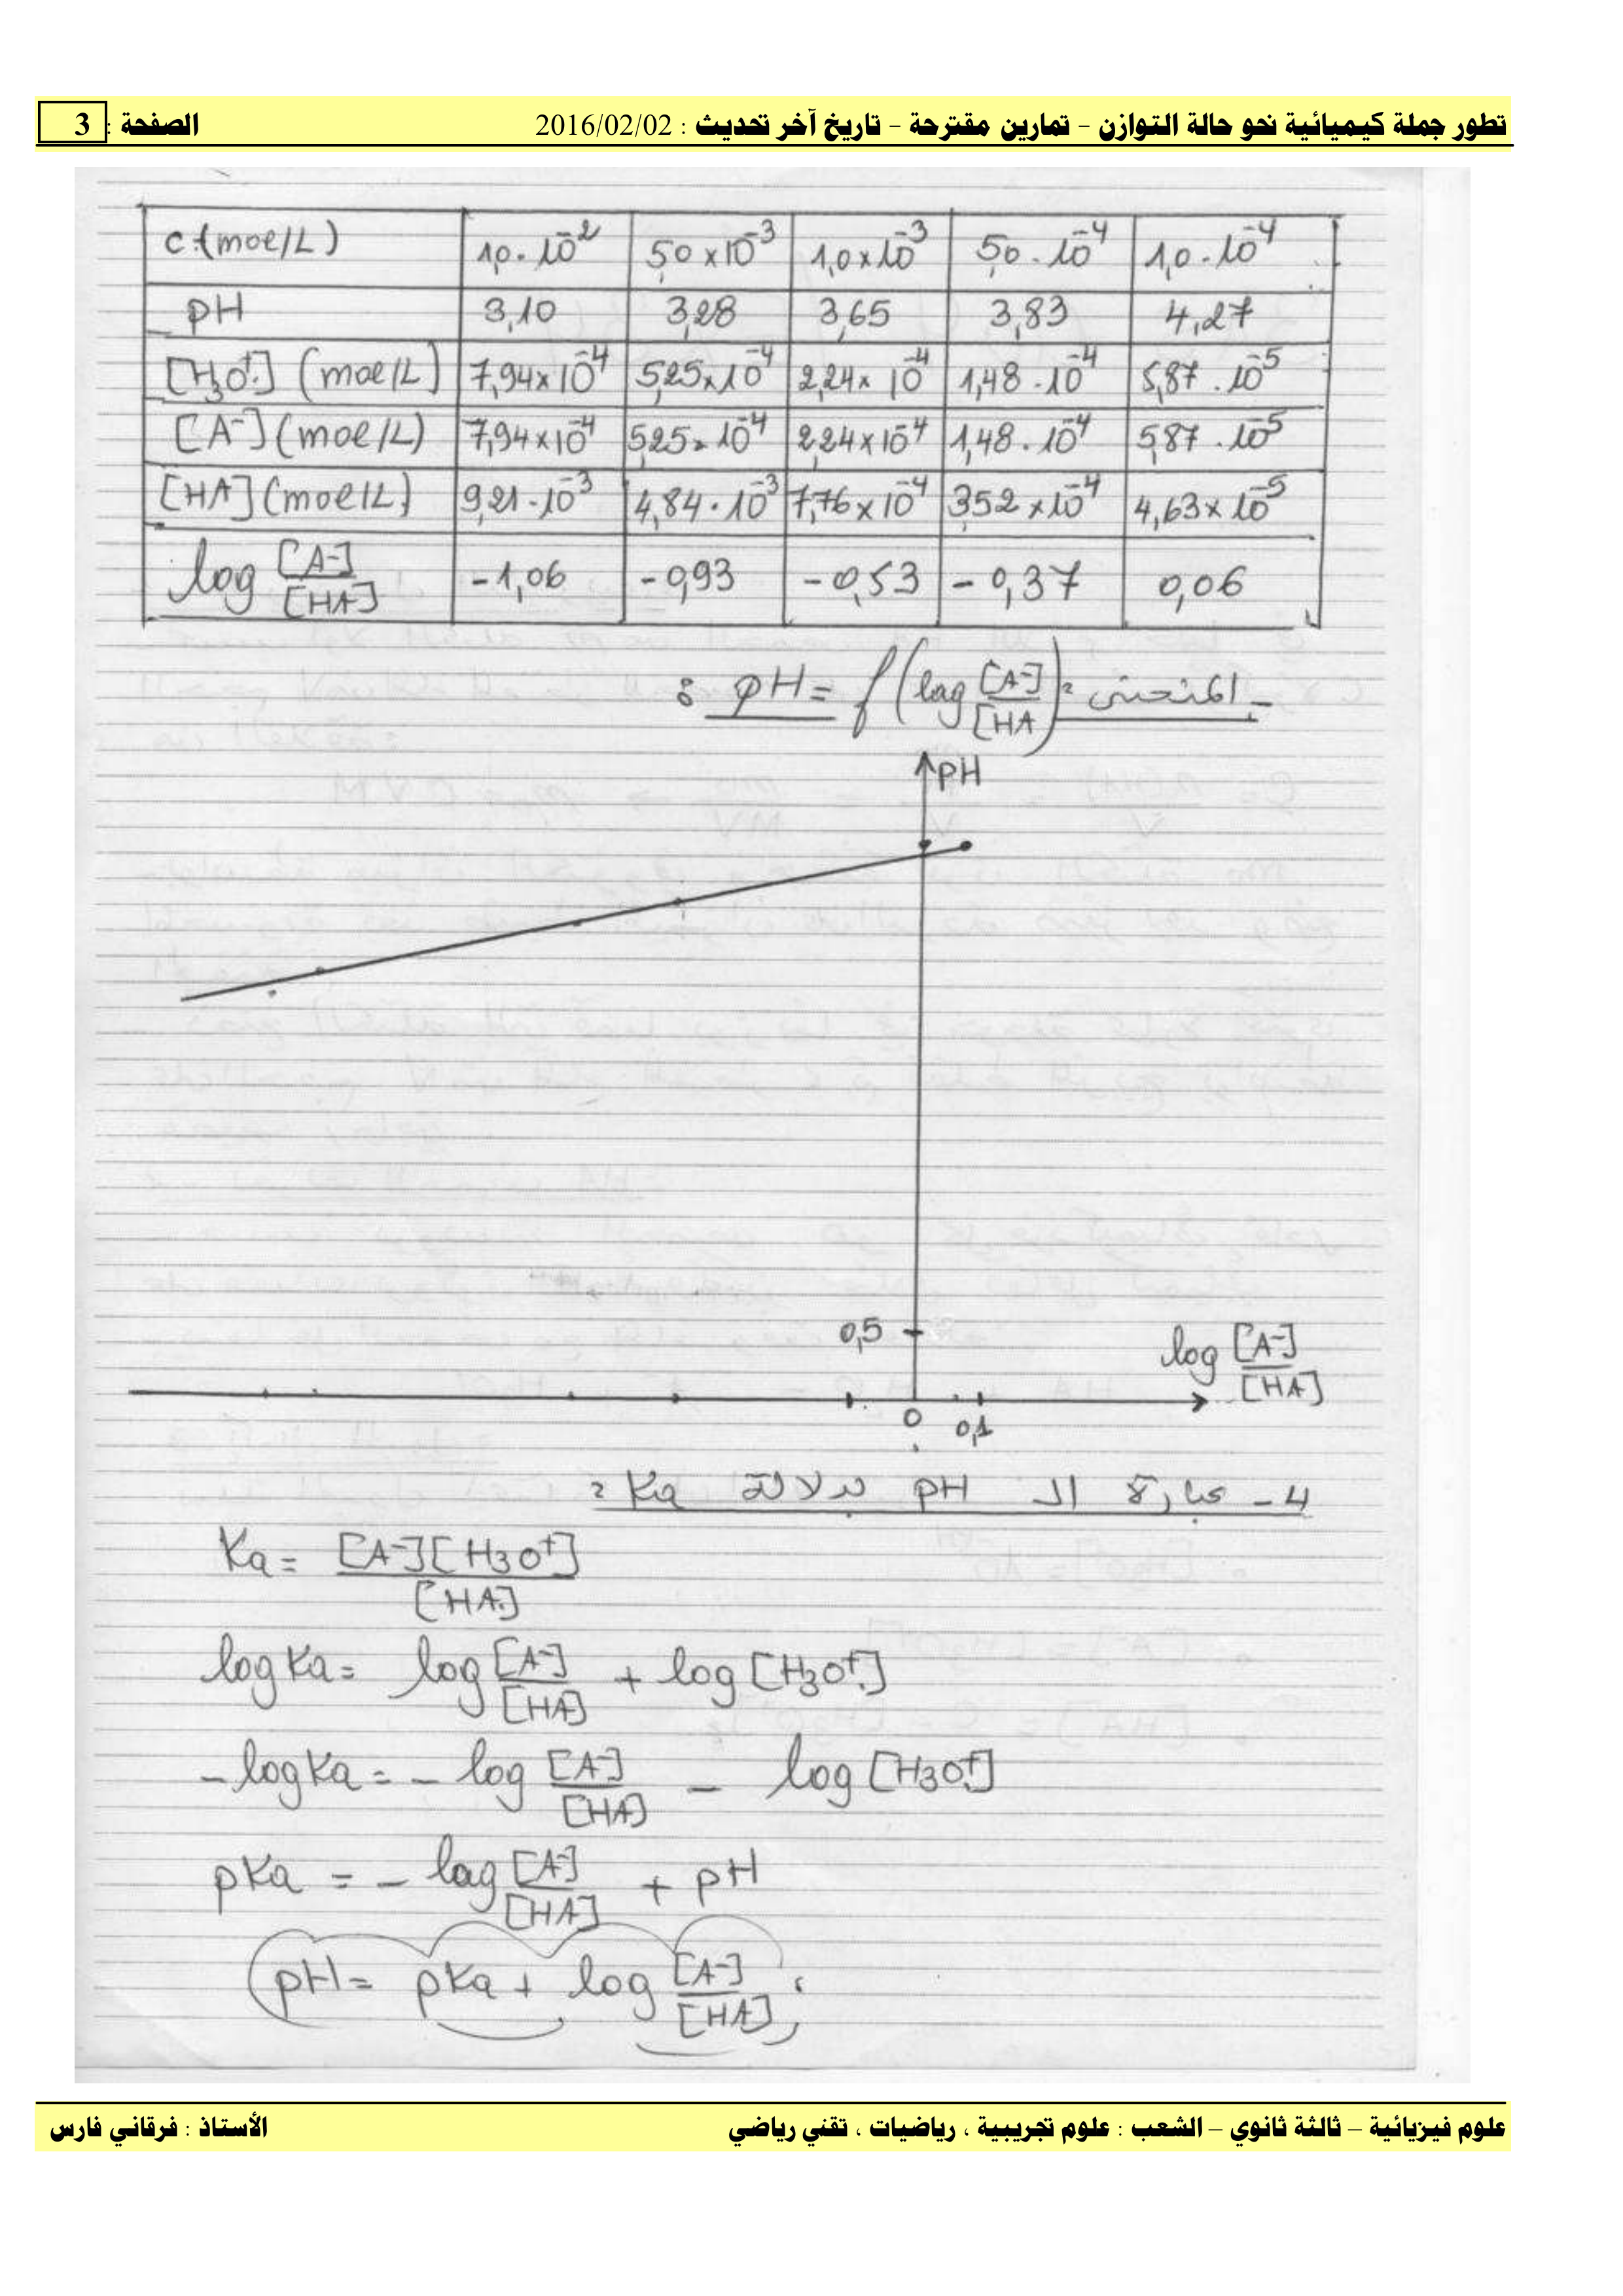 تطور جملة كيميائية نحو حالة التوازن – تمارين مقترحة – تاريخ آخر تحديث : 2016/02/02 الصفحة : 3
C (moe/L) 1,0 . 10⁻² 5,0 × 10⁻³ 1,0 × 10⁻³ 5,0 . 10⁻⁴ 1,0 . 10⁻⁴
pH 3,10 3,28 3,65 3,83 4,27
[H₃O⁺] (moe/L) 7,94 × 10⁻⁴ 5,25 × 10⁻⁴ 2,24 × 10⁻⁴ 1,48 . 10⁻⁴ 5,87 . 10⁻⁵
[A⁻] (moe/L) 7,94 × 10⁻⁴ 5,25 . 10⁻⁴ 2,24 × 10⁻⁴ 1,48 . 10⁻⁴ 5,87 . 10⁻⁵
[HA] (moe/L) 9,21 . 10⁻³ 4,84 . 10⁻³ 7,76 × 10⁻⁴ 3,52 × 10⁻⁴ 4,63 × 10⁻⁵
log [A⁻]/[HA] -1,06 -0,93 -0,53 -0,37 0,06
- المنحنى pH = f(log [A⁻]/[HA]) :
pH
0,5
log [A⁻]/[HA]
0 0,1
4 - عبارة الـ pH بدلالة Ka :
Ka = [A⁻][H₃O⁺]/[HA]
log Ka = log [A⁻]/[HA] + log [H₃O⁺]
- log Ka = - log [A⁻]/[HA] - log [H₃O⁺]
pKa = - log [A⁻]/[HA] + pH
pH = pKa + log [A⁻]/[HA]
علوم فيزيائية – ثالثة ثانوي – الشعب : علوم تجريبية ، رياضيات ، تقني رياضي الأستاذ : فرقاني فارس